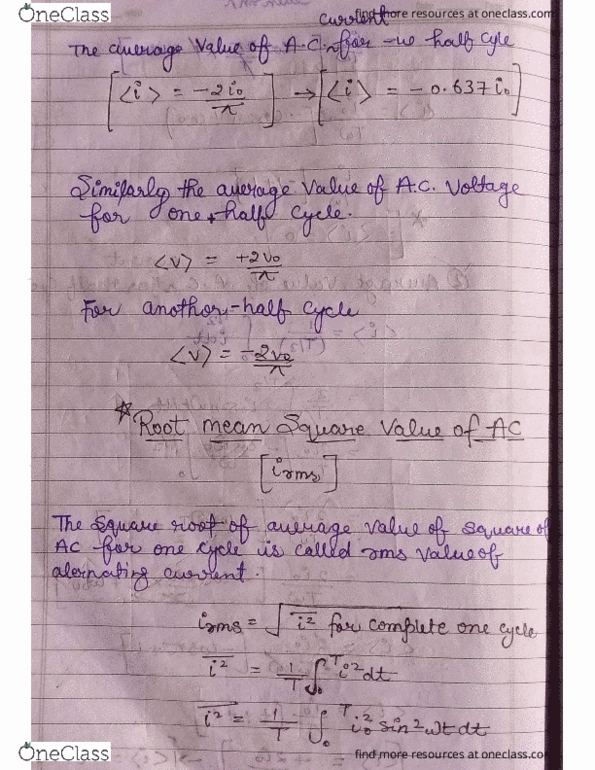 OneClass
find more resources at oneclass.com
current
The average Value of A.C. for -ve half cyle
[<i> = -2i₀/π] → [<i> = -0.637 i₀]
Similarly the average Value of A.C. Voltage
for one + half cycle.
<v> = +2v₀/π
For anothor - half cycle
<v> = -2v₀/π
* Root mean Square Value of AC
[irms]
The square root of average value of square of
AC for one cycle is called rms value of
alernating current.
irms = √i̅²̅ for complete one cycle
i̅²̅ = 1/T ∫₀ᵀ i²dt
i̅²̅ = 1/T ∫₀ᵀ i₀² sin²wt dt
OneClass
find more resources at oneclass.com